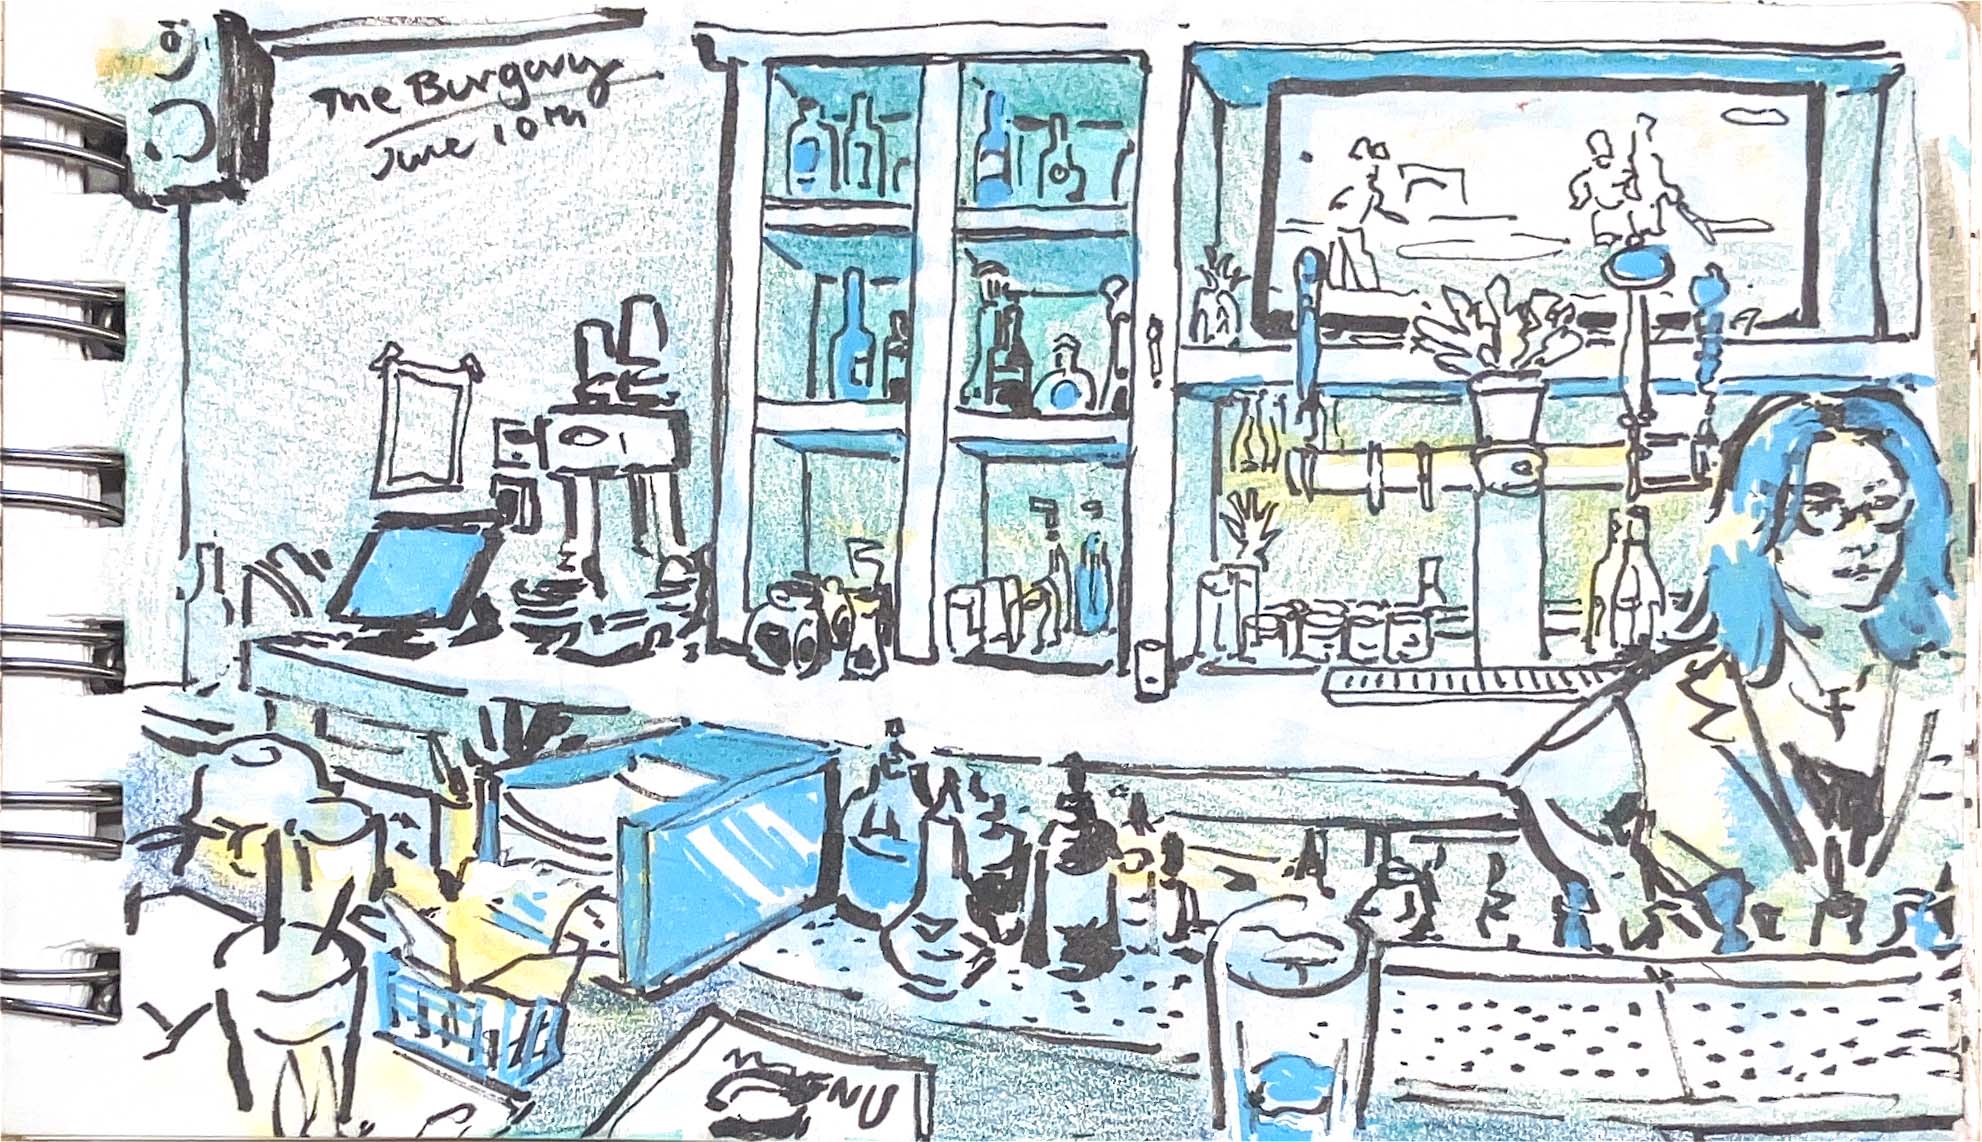 The Burgary
June 10th
MENU